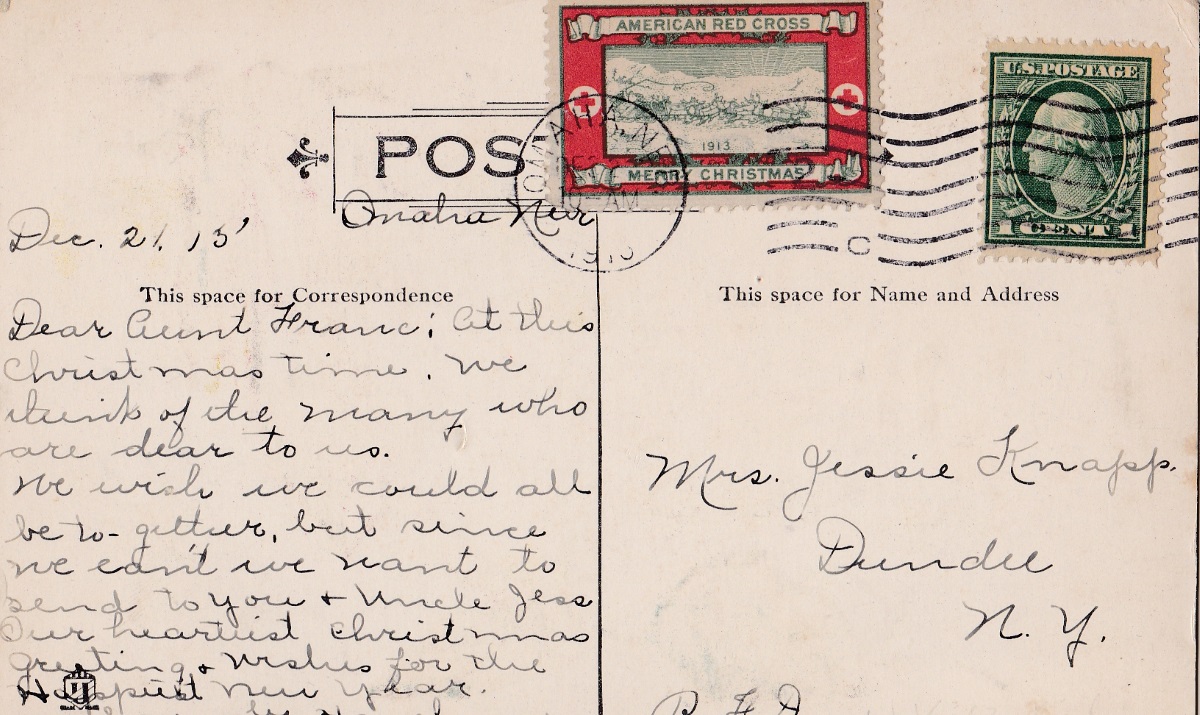 AMERICAN RED CROSS
1913
MERRY CHRISTMAS
U.S. POSTAGE
1 CENT 1
POS
OMAHA, NE
AM
C
Omaha Neb
Dec. 21, 13'
This space for Correspondence
Dear Aunt Franc; At this
Christmas time, we
think of the many who
are dear to us.
We wish we could all
be to-gether, but since
we can't we want to
send to you + Uncle Jess
Our heartiest Christmas
greeting + wishes for the
Happiest New Year.
This space for Name and Address
Mrs. Jessie Knapp.
Dundee
N. Y.